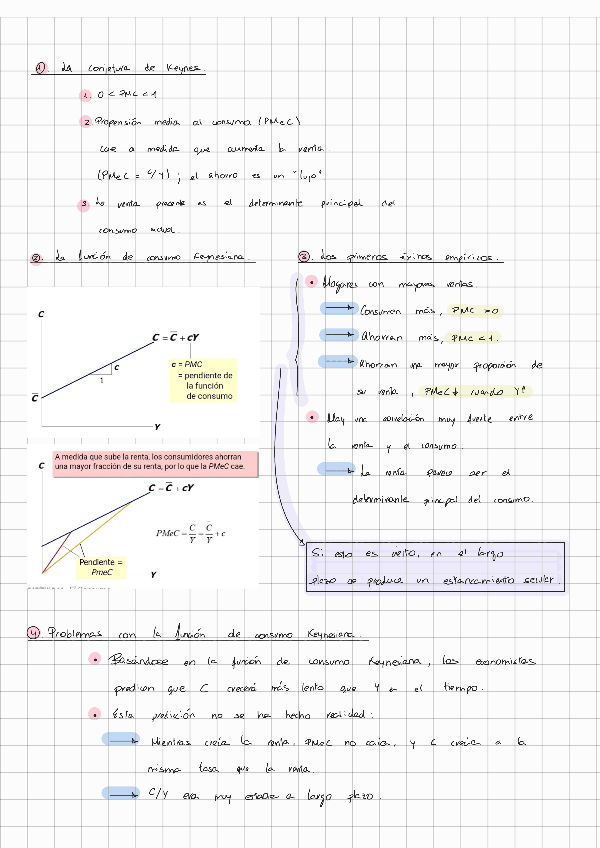 1) La conjetura de Keynes.
1. 0 < PMC < 1
2. Propensión media al consumo (PMeC)
cae a medida que aumenta la renta
(PMeC = C/Y) ; el ahorro es un "lujo"
3. La renta presente es el determinante principal del
consumo actual.
2. La función de consumo Keynesiana.
C
C = C̅ + cY
c
1
c = PMC
= pendiente de
la función
de consumo
C̅
Y
A medida que sube la renta, los consumidores ahorran
una mayor fracción de su renta, por lo que la PMeC cae.
C
C = C̅ + cY
PMeC = C/Y = C̅/Y + c
Pendiente =
PmeC
Y
3. Los primeros éxitos empíricos.
• Hogares con mayores rentas.
→ Consumen más, PMC >0
→ Ahorran más, PMC < 1.
→ Ahorran una mayor proporción de
su renta, PMeC↓ cuando Y↑
• Hay una correlación muy fuerte entre
la renta y el consumo.
→ La renta parece ser el
determinante principal del consumo.
Si esto es cierto, en el largo
plazo se produce un estancamiento secular.
4) Problemas con la función de consumo Keynesiana.
• Basándose en la función de consumo Keynesiana, los economistas
predicen que C crecerá más lento que Y en el tiempo.
• Esta predicción no se ha hecho realidad:
→ Mientras crecía la renta, PMeC no caía, y C crecía a la
misma tasa que la renta.
→ C/Y era muy estable a largo plazo.